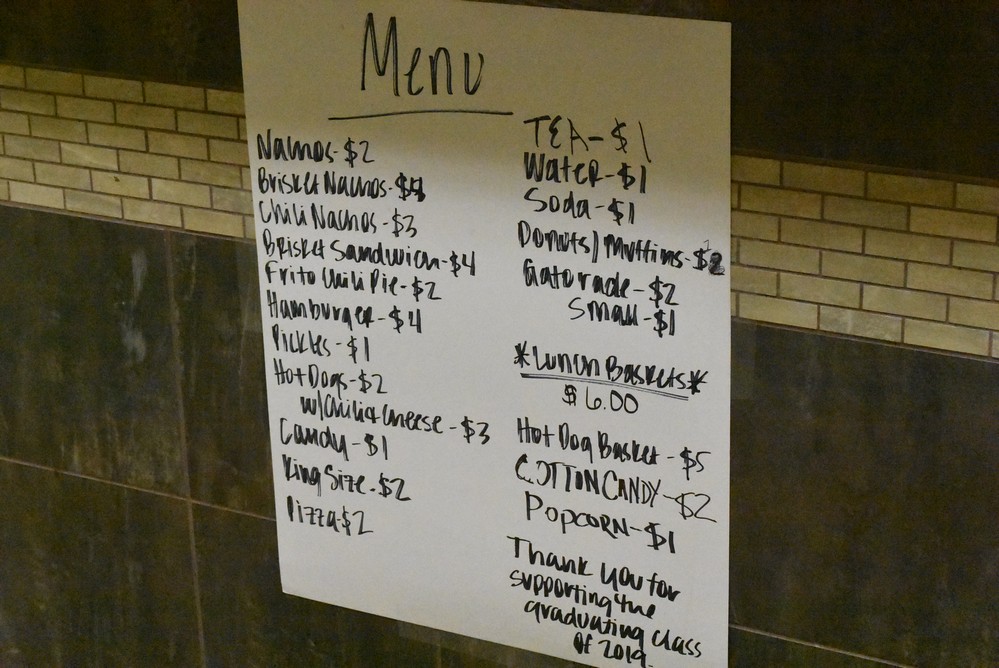 Menu
Nachos-$2
Brisket Nachos-$4
Chili Nachos-$3
Brisket Sandwich-$4
Frito Chili Pie-$2
Hamburger-$4
Pickles-$1
Hot Dogs-$2
w/chili & cheese-$3
Candy-$1
King Size-$2
Pizza-$2
TEA-$1
Water-$1
Soda-$1
Donuts/Muffins-$2
Gatorade-$2
Small-$1
*Lunch Baskets*
$6.00
Hot Dog Basket-$5
COTTON CANDY-$2
POPCORN-$1
Thank you for
supporting the
graduating class
of 2019.